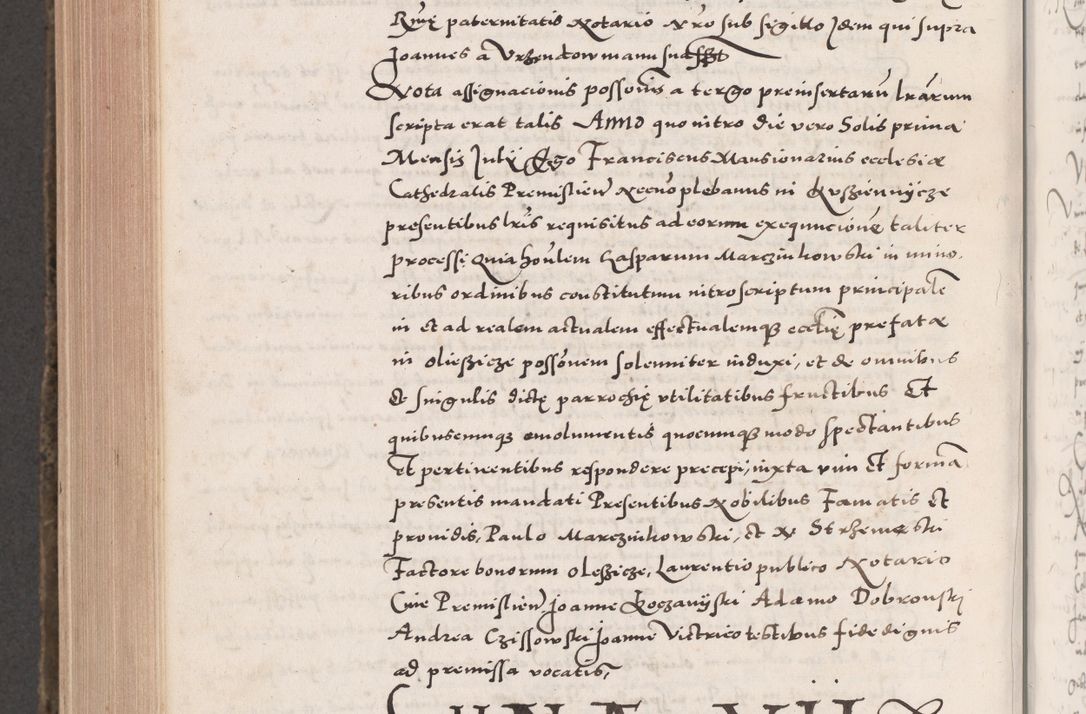 Rmę paternitatis Notario Nro sub sigillo Idem qui supra
Joannes a Vrzendow manu sua sszt
Nota assignacionis possōnis a tergo preinsertarū lrārum
scripta erat talis Anno quo intro die vero Solis prima
Mensis Julÿ Ego Franciscus Mansionarius ecclesiæ
Cathedralis Premislien̄ Necnō plebanus in
presentibus lrīs requisitus ad eorum exequucionē taliter
processi, Quia hoñlem Casparum Marczinkowski in mino.
ribus ordinibus constitutum introscriptum principalē
in et ad realem actualem effectualemq̃ eccliæ prefatæ
in Olieszicze possōnem solenniter induxi, et de omnibus
et singulis dictę parrochię vtilitatibus fructibus Et
quibuscumq̃ emolumentis quocumq̃ modo spectantibus
et pertinentibus respondere precepi, iuxta vim Et formā
presentis mandati Presentibus Nobilibus Famatis Et
prouidis, Paulo Marczinkowski, et N Strzemeski
Factore bonorum Oleszicze, Laurentio publico Notario
Ciuę Premislien̄. Joanne Koczanÿski Adamo Dobrouski
Andrea Czissowski Joanne Victrico testibus fide dignis
ad premissa vocatis,